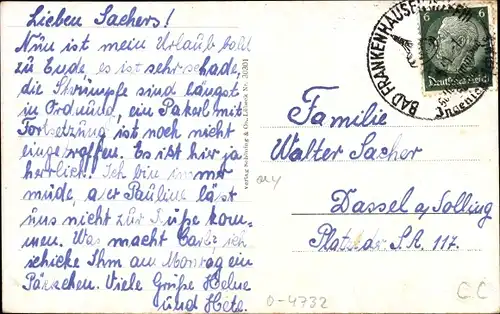 Lieben Sachers!
Nun ist mein Urlaub bald
zu Ende es ist sehr schade,
die Strümpfe sind längst
in Ordnung, ein Pakerl mit
Fortsetzung ist noch nicht
eingetroffen. Es ist hir ja
herrlich! Ich bin immer
müde, aber Pauline läst
uns nicht zur Ruhe kom-
men. Was macht Carl? ich
schicke Ihm am Montag ein
Päckchen. Viele Grüße Helene
und Hete.
Verlag Schöning & Co., Lübeck Nr. 30301
BAD FRANKENHAUSEN
Ingenieur
6 6
Deutsches Reich
Familie
Walter Sacher
Dassel a/Solling
Platz der S.A. 117.
0-4732
CC